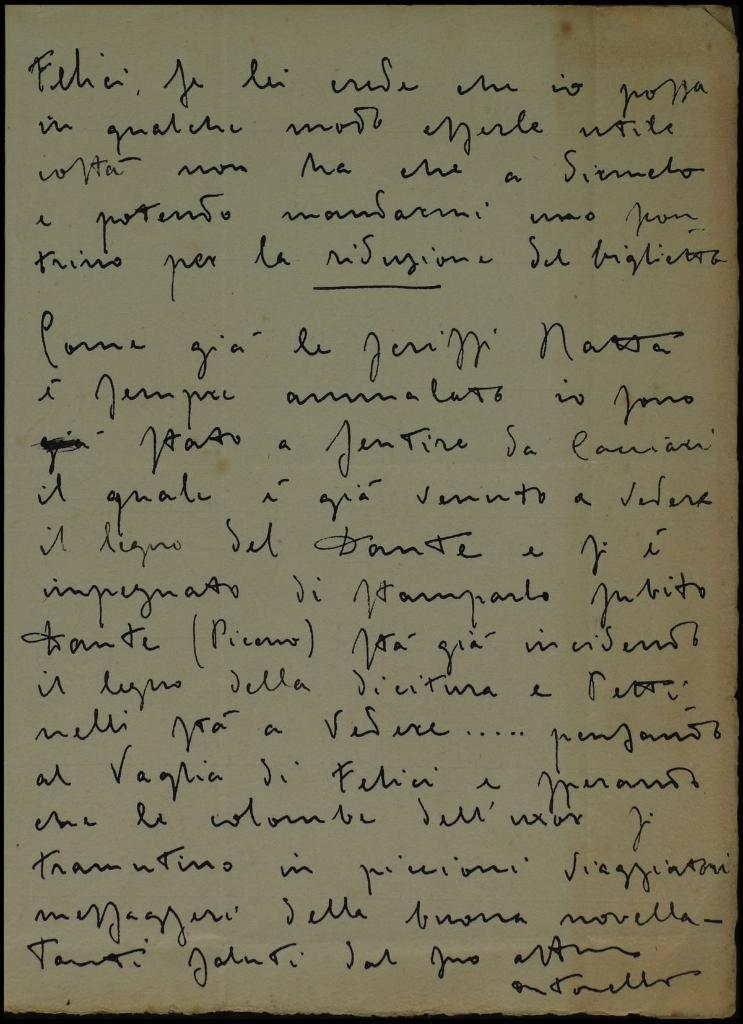 Felici. Se lei crede che io possa
in qualche modo esserle utile
costà non ha che a dirmelo
e potendo mandarmi uno scon_
trino per la riduzione del biglietto
Come già le scrissi Nattà
è sempre ammalato io sono
già stato a sentire da Cacciari
il quale è già venuto a vedere
il legno del Dante e si è
impegnato di stamparlo subito
Dante (Piceno) stà già incidendo
il legno della dicitura e Petti
nelli stà a vedere ..... pensando
al Vaglia di Felici e sperando
che le colombe dell'uxor si
tramutino in piccioni viaggiatori
messaggeri della buona novella_
Tanti saluti dal suo affmo
Antonello